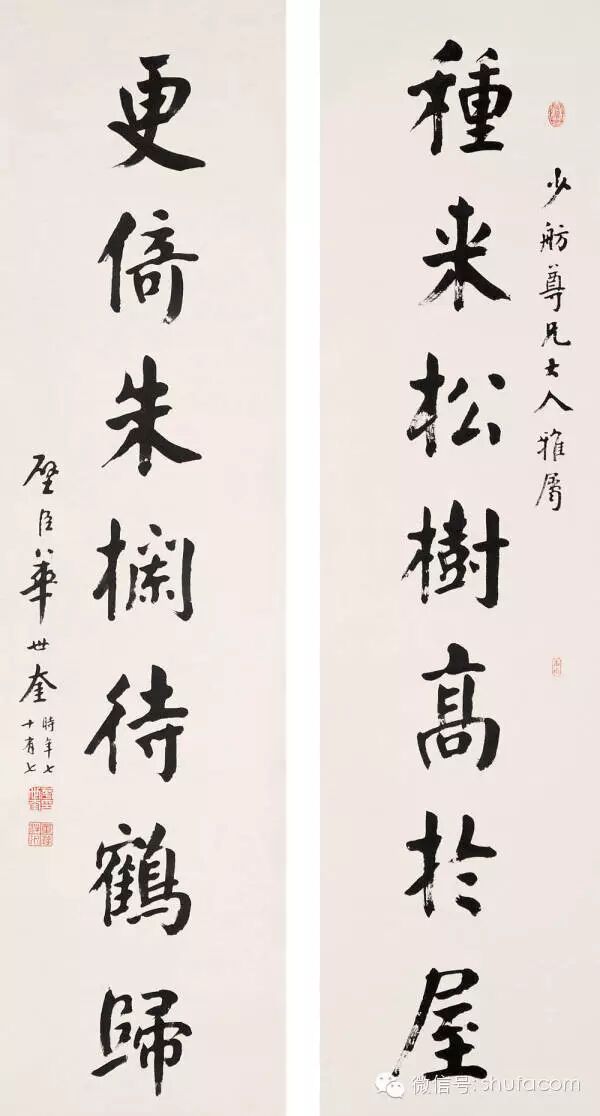 少舫尊兄大人雅屬
種来松樹高於屋
更倚朱欄待鶴歸
璧臣華世奎
時年七
十有七
微信号: shufacom